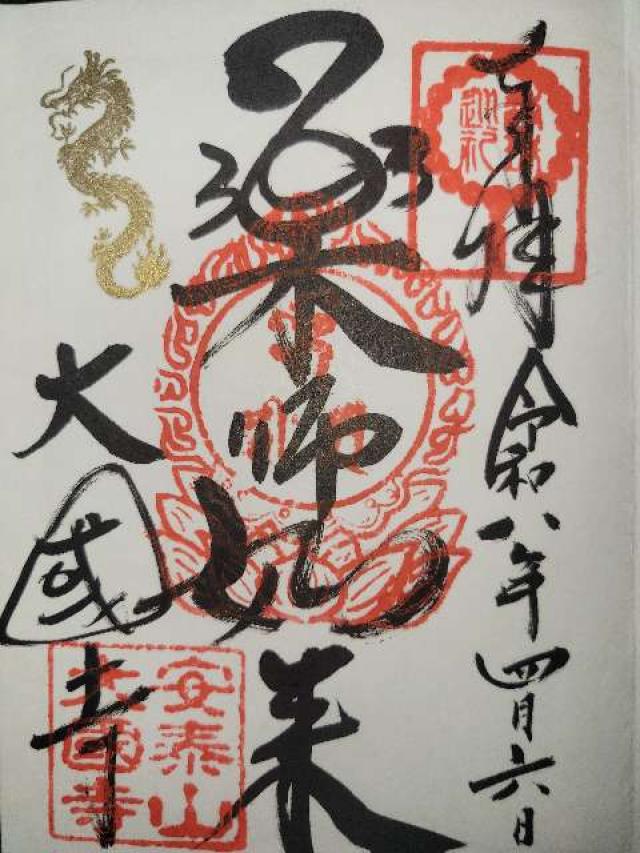 奉拝
令和八年四月六日
薬師如来
大國寺
安泰山
大國寺